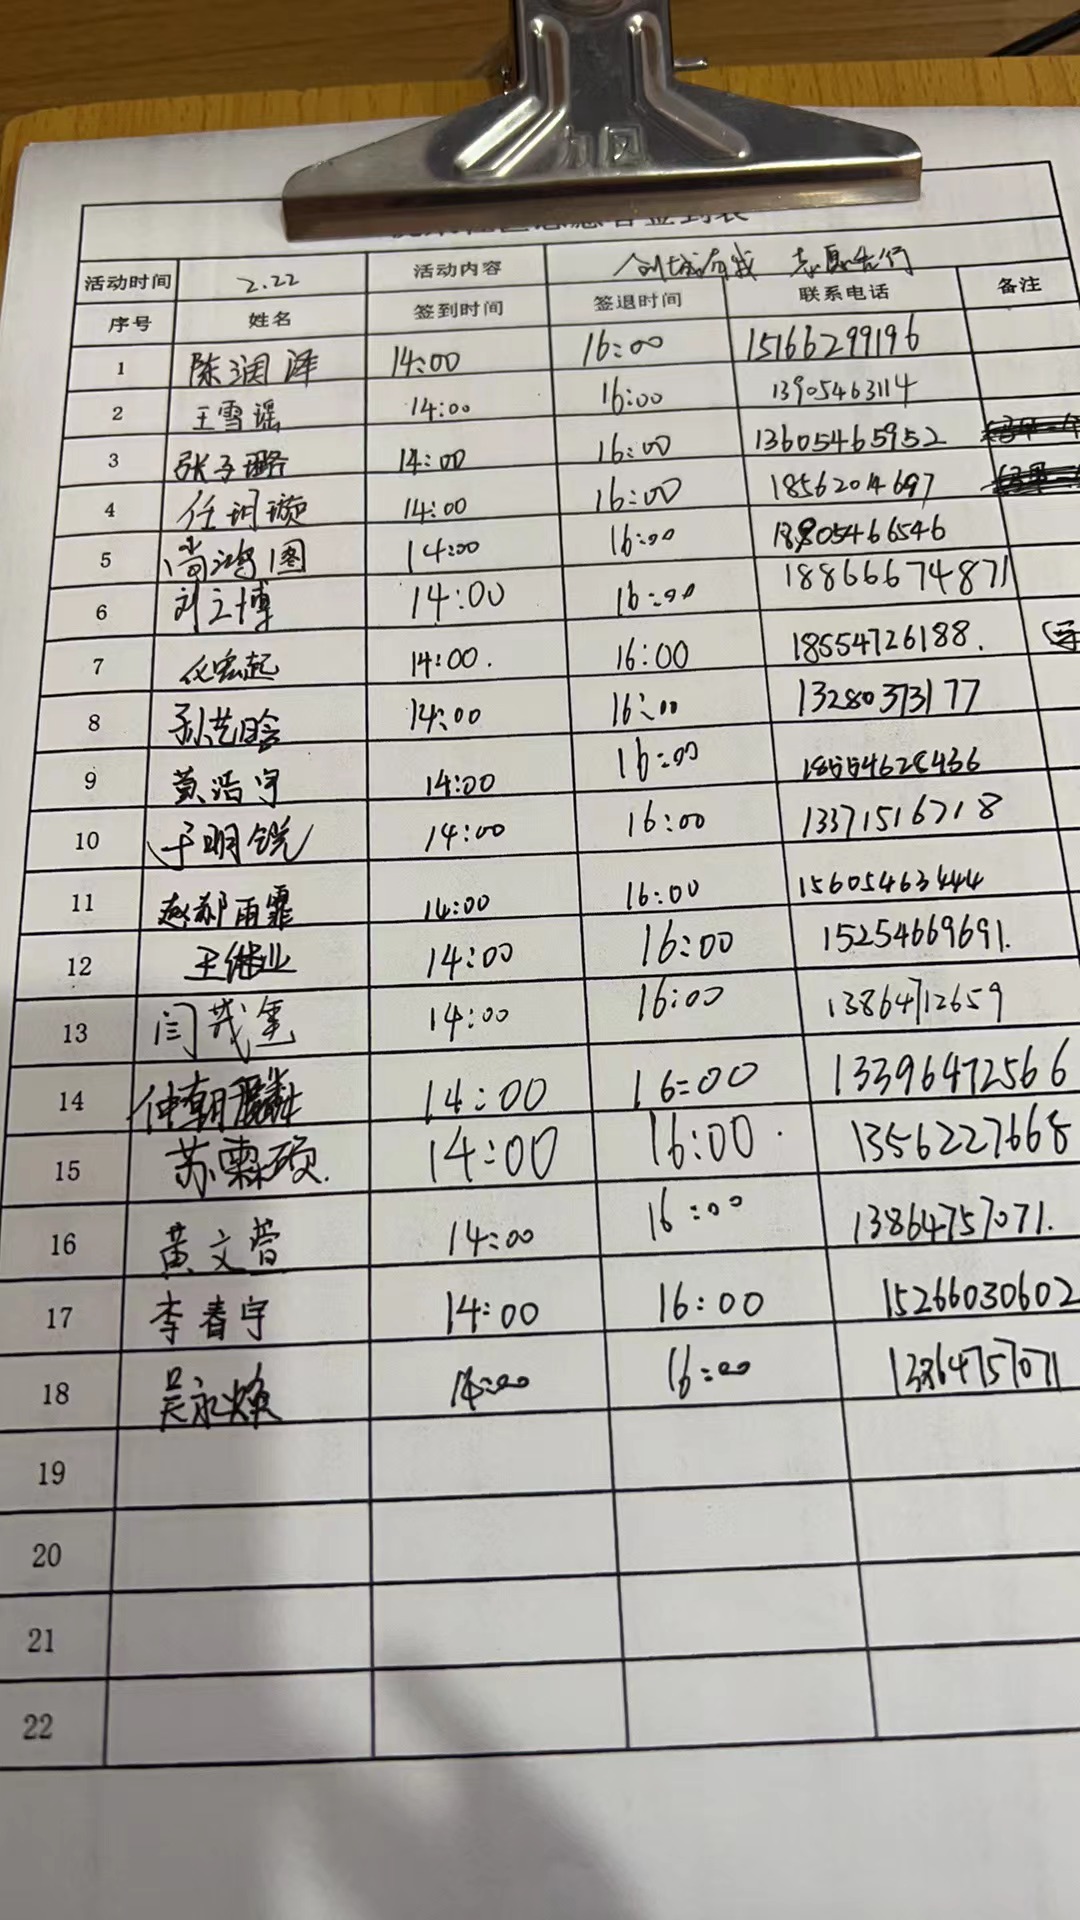 力风
签到表
活动时间 2.22 活动内容 创城有我 志愿先行
序号 姓名 签到时间 签退时间 联系电话 备注
1 陈润泽 14:00 16:00 15166299196
2 王雪瑶 14:00 16:00 13905463114
3 张子璐 14:00 16:00 13605465952
4 任玥璇 14:00 16:00 18562014697
5 尚鸿图 14:00 16:00 18805466546
6 刘立博 14:00 16:00 18866674871
7 14:00. 16:00 18554726188.
8 孙艺晗 14:00 16:00 13280373177
9 黄浩宇 14:00 16:00 18554628436
10 于明锐 14:00 16:00 13371516718
11 赵郝雨霏 14:00 16:00 15605463444
12 王继业 14:00 16:00 15254669691.
13 闫茂 14:00 16:00 13864712659
14 仲朝麟 14:00 16:00 13396472566
15 苏霖硕. 14:00 16:00. 13562227668
16 黄文萱 14:00 16:00 13864757071.
17 李春宇 14:00 16:00 15266030602
18 吴永焕 14:00 16:00 13864757071
19
20
21
22